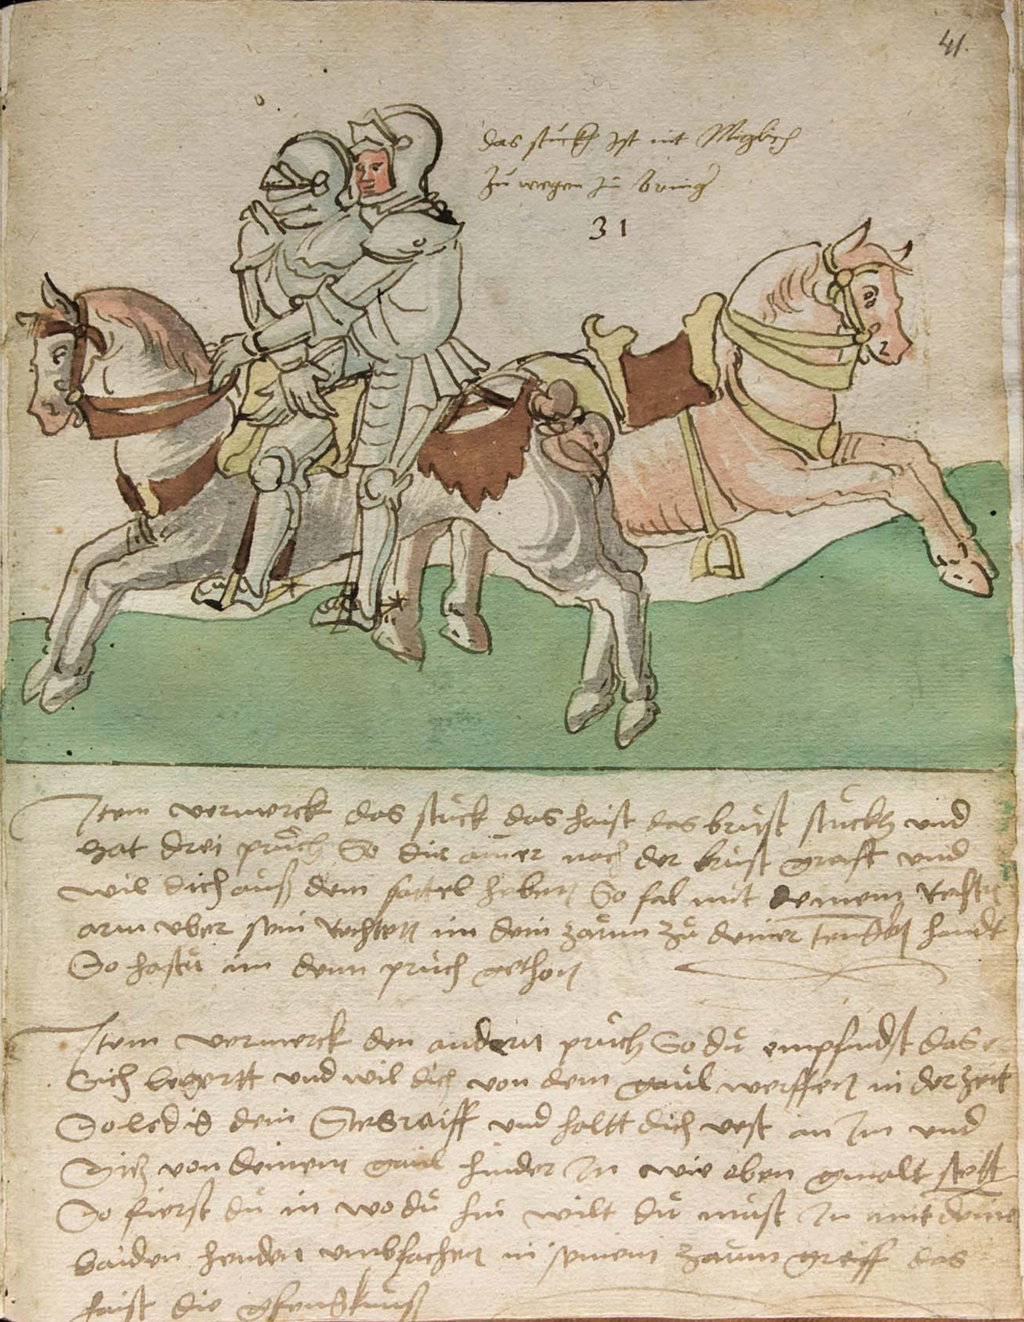 41.
das stuckh ist nit Muglich
zu wegen zu bring
31
Item vermerck das stuck das haist das brust stuckh und
hat drei pruch So dir ainer nach der brust greift und
wil dich auß dem sattel heben So fal mit deinem Rechten
arm uber sein Rechten im dein zaum zu deiner lencken handt
So hastu im denn pruch gethon
Item vermerck den andern pruch So du empfindst das er
Dich begertt und wil dich von dem gaul werffen in der zeit
So led ig dein Stegraiff und haltt dich vest an Im und
Sitz von deinem gaul hinder In wie oben gmalt stett
So fierst du in wo du hin wilt du must In mit deinen
baiden henden umbfachen in seinem zaum greiff das
haist die gfencknuß